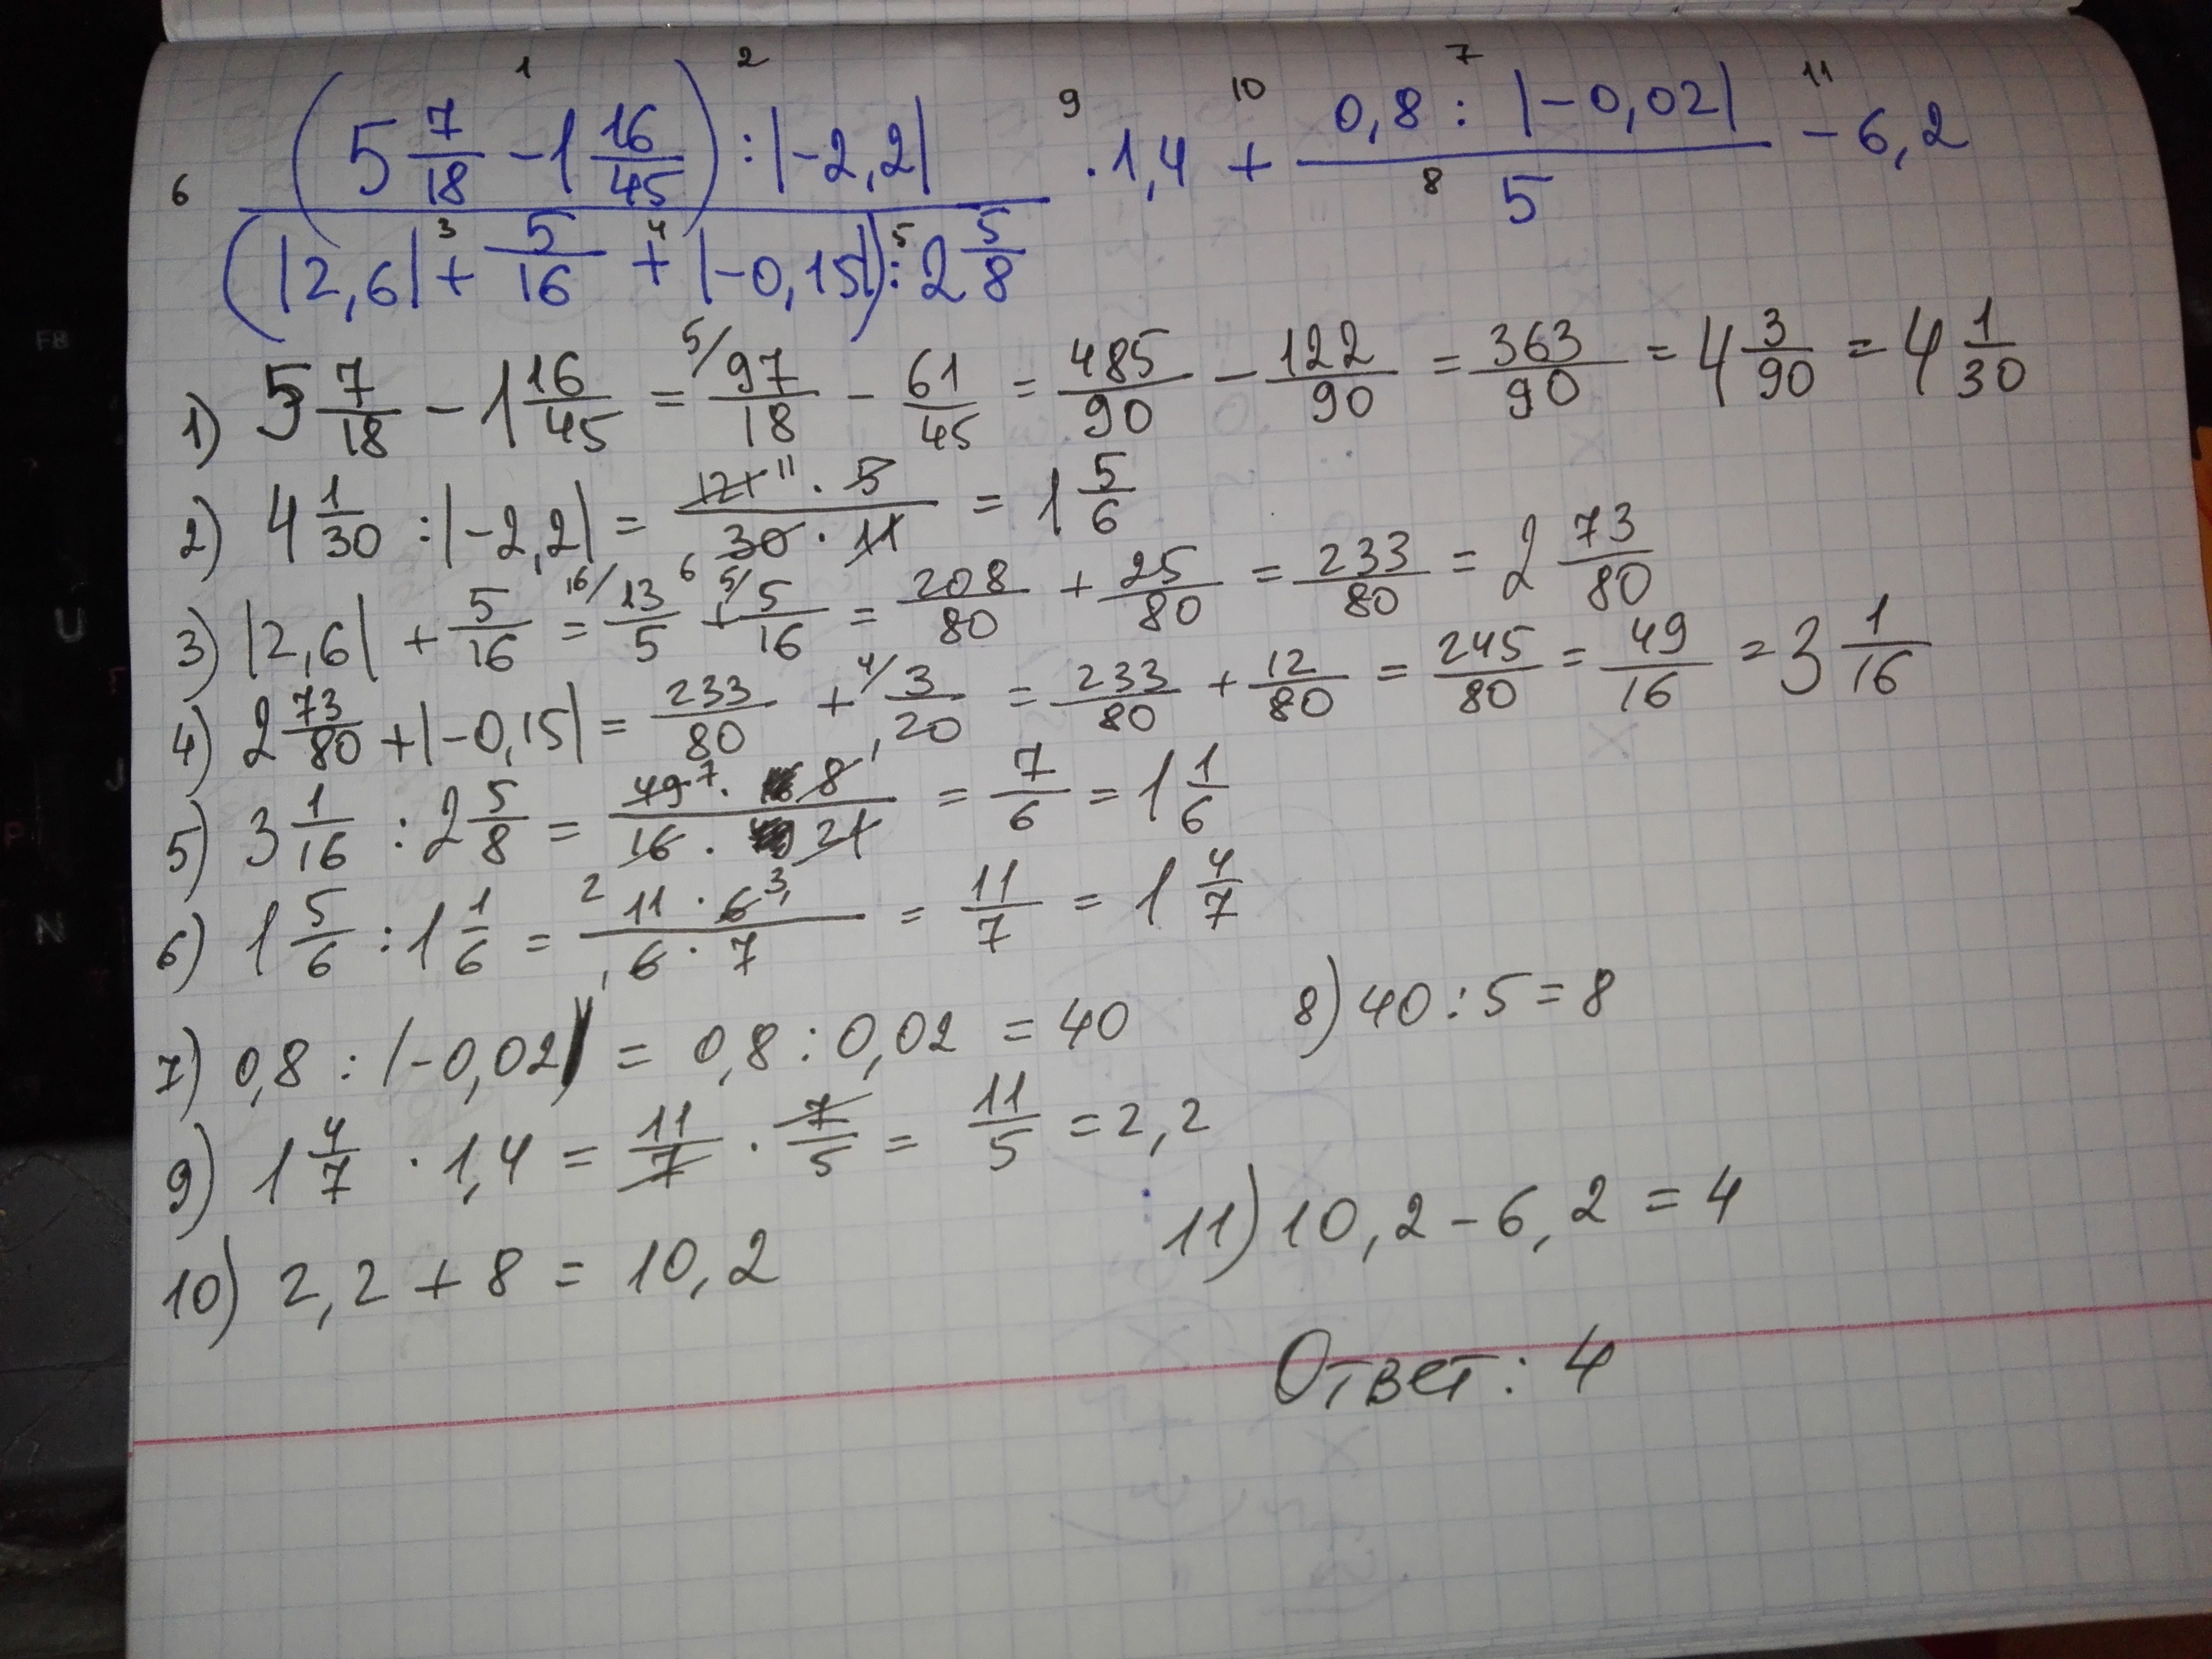 1 2 9 10 7 11
6 ((5 7/18 - 1 16/45) : |-2,2|) / ((|2,6| + 5/16 + |-0,15|) : 2 5/8) · 1,4 + (0,8 : |-0,02|) / 5 - 6,2
3 4 5 8
1) 5 7/18 - 1 16/45 = 5/ 97/18 - 61/45 = 485/90 - 122/90 = 363/90 = 4 3/90 = 4 1/30
2) 4 1/30 : |-2,2| = (121 11 · 5) / (6 30 · 11) = 1 5/6
3) |2,6| + 5/16 = 16/ 13/5 + 5/ 5/16 = 208/80 + 25/80 = 233/80 = 2 73/80
4) 2 73/80 + |-0,15| = 233/80 + 4/ 3/20 = 233/80 + 12/80 = 245/80 = 49/16 = 3 1/16
5) 3 1/16 : 2 5/8 = (49 7 · 8 1) / (16 · 21) = 7/6 = 1 1/6
6) 1 5/6 : 1 1/6 = (2 11 · 6 3) / (6 · 7) = 11/7 = 1 4/7
7) 0,8 : |-0,02| = 0,8 : 0,02 = 40 8) 40 : 5 = 8
9) 1 4/7 · 1,4 = 11/7 · 7/5 = 11/5 = 2,2
10) 2,2 + 8 = 10,2 11) 10,2 - 6,2 = 4
Ответ: 4
F8
U
J
P
N
T